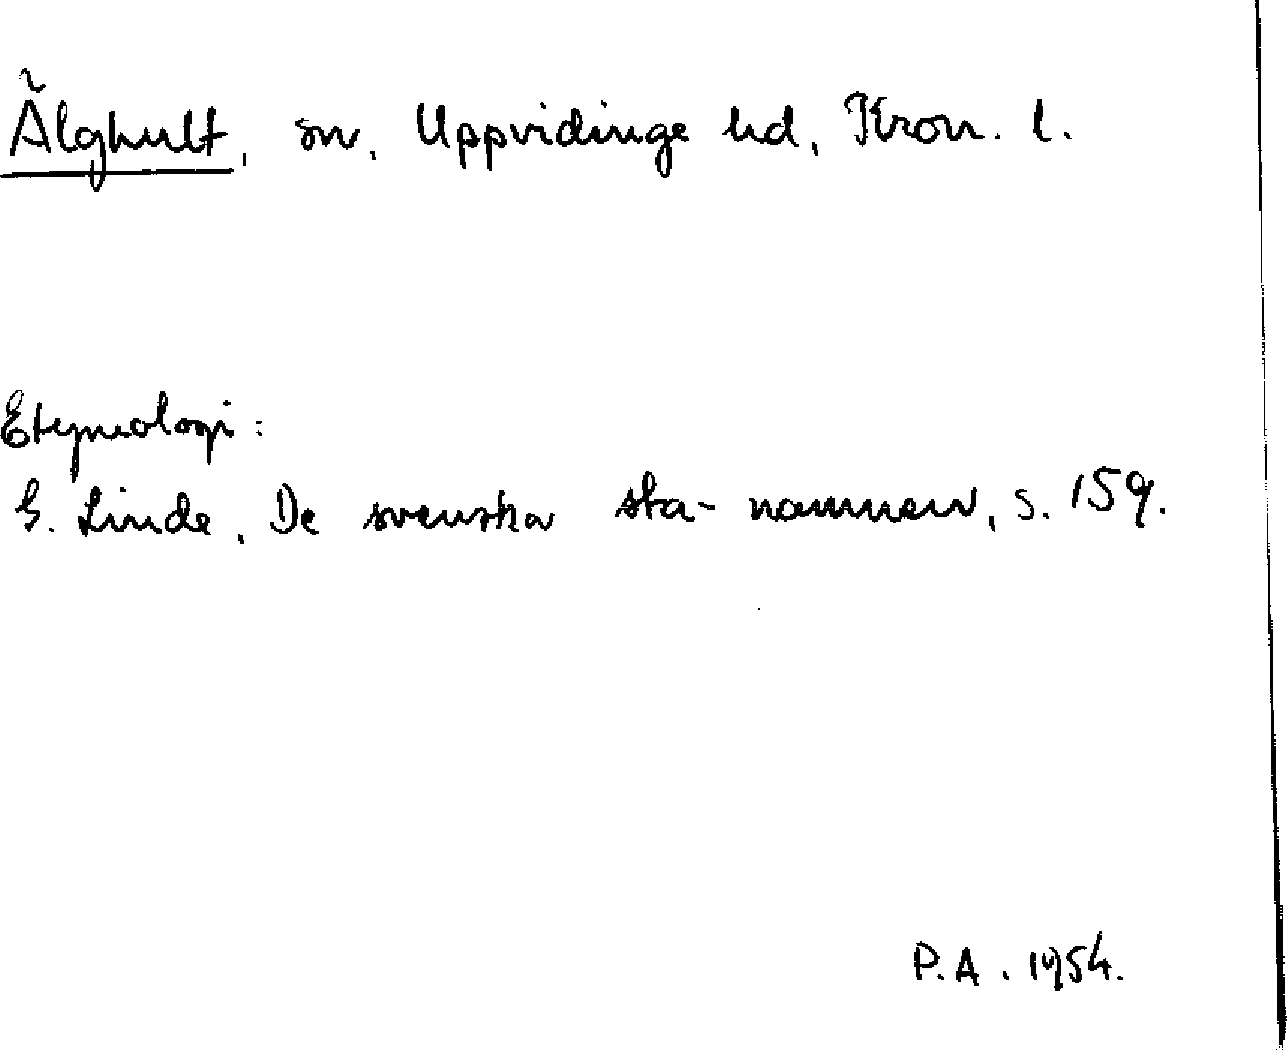 Älghult, sn, Uppvidinge hd, Kron. l.
Etymologi:
G. Linde, De svenska sta-namnen, s. 159.
P.A. 1954.